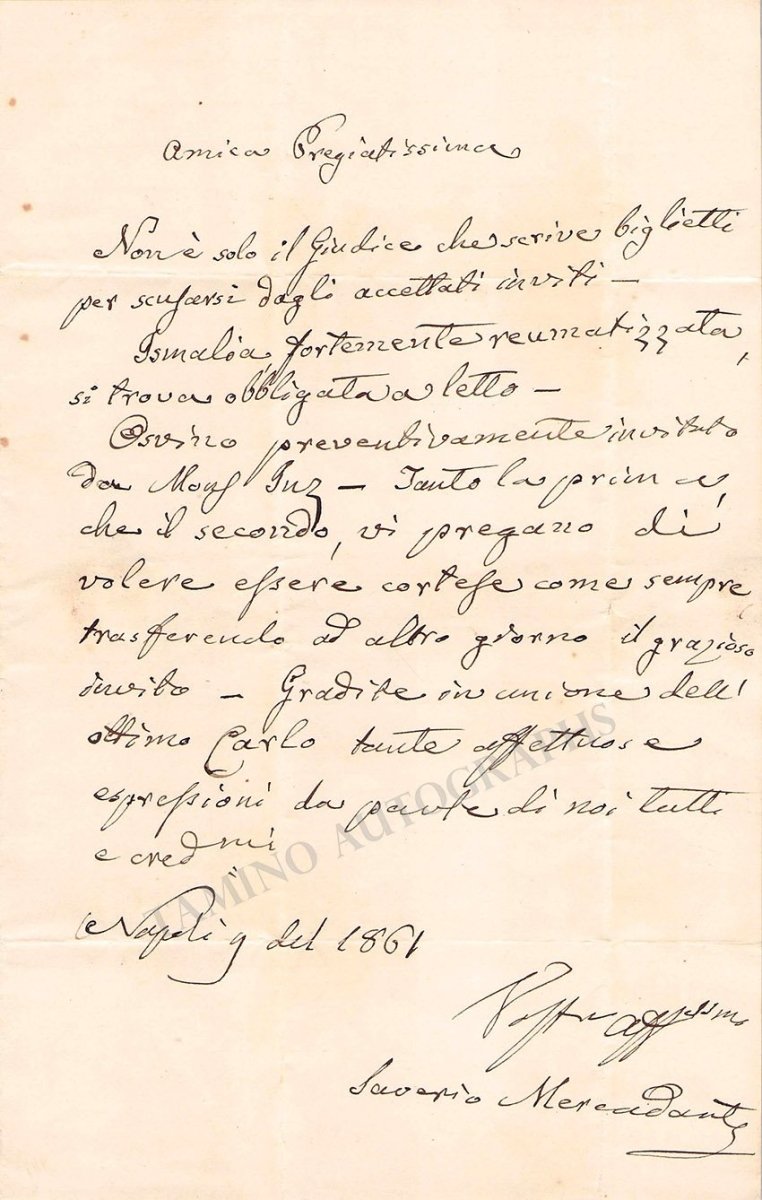 Amica Pregiatissima
Non è solo il Giudice che scrive biglietti
per scusarsi dagli accettati inviti —
Ismalia, fortemente reumatizzata,
si trova obbligata a letto —
Osvino preventivamente invitato
da — Tanto la prima,
che il secondo, vi pregano di
volere essere cortese come sempre
trasferendo ad altro giorno il grazioso
invito — Gradite in unione dell'
ottimo Carlo tante affettuose
espressioni da parte di noi tutti
e credmi
Napoli 9 del 1861
Vostro affssmo
Saverio Mercadante
TAMINO AUTOGRAPHS